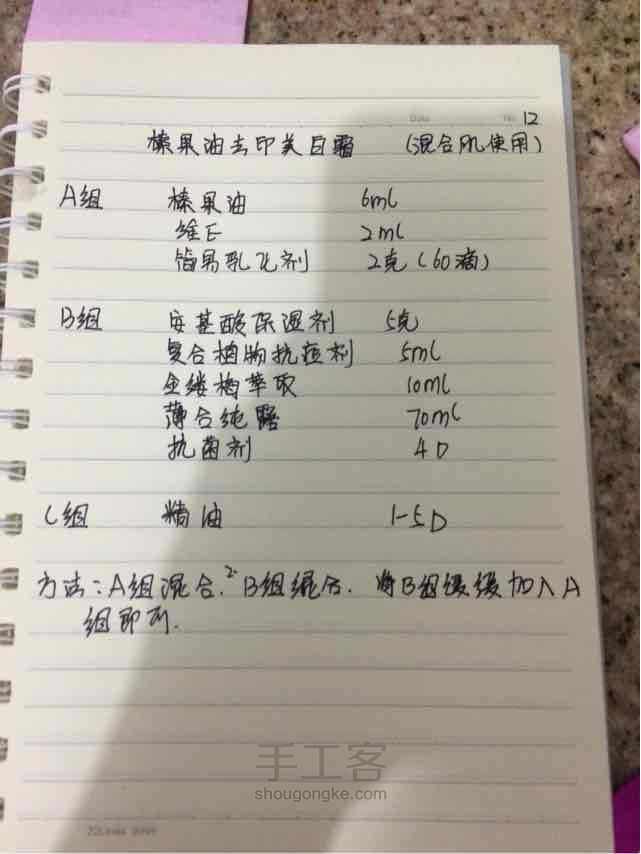 Date No. 12
榛果油去印美白霜 (混合肌使用)
A组 榛果油 6ml
维E 2ml
简易乳化剂 2克(60滴)
B组 安基酸保湿剂 5克
复合植物抗痘剂 5ml
金缕梅萃取 10ml
薄合纯露 70ml
抗菌剂 4D
C组 精油 1-5D
方法:A组混合.2B组混合.将B组缓缓加入A
组即可.
手工客
shougongke.com